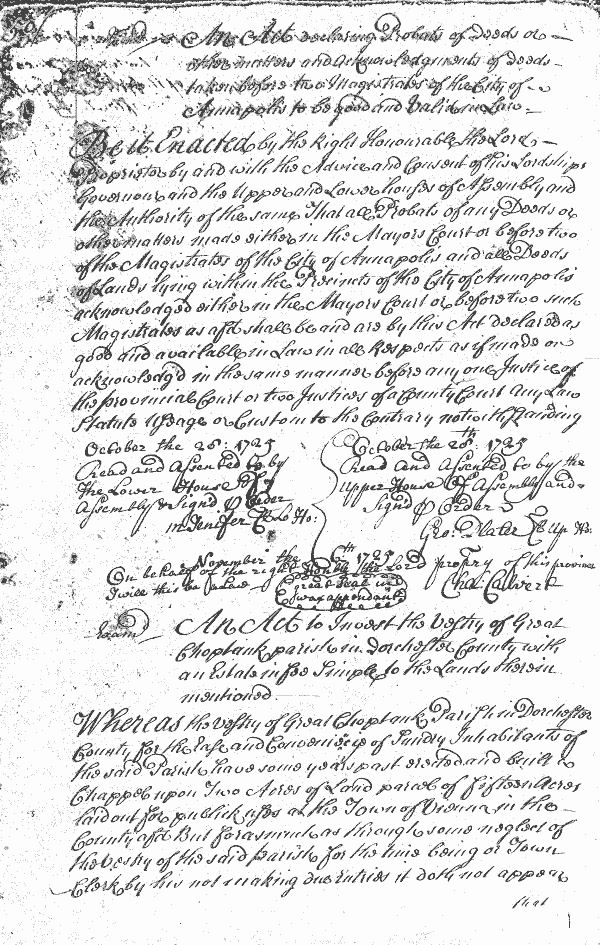 An Act declaring Probats of Deeds or
other matters and Acknowledgments of deeds
taken before two Magistrates of the City of
Annapolis to be good and Valid in Law
Be it Enacted by the Right Honourable the Lord
Proprietor by and with the Advice and Consent of his Lordships
Governour and the Upper and Lower houses of Assembly and
the Authority of the same That all Probats of any Deeds or
other matters made either in the Mayors Court or before two
of the Magistrates of the City of Annapolis and all Deeds
of Lands lying within the Precincts of the City of Annapolis
acknowledged either in the Mayors Court or before two such
Magistrates as afd shall be and are by this Act declared as
good and available in Law in all Respects as if made or
acknowledg'd in the same manner before any one Justice of
the provincial Court or two Justices of a County Court Any Law
Statute Usage or Custom to the Contrary notwithstanding
October the 28th: 1725
Read and Assented to by
the Lower House of
Assembly & Signd p Order
m Jenifer Cl Lo Ho:
October the 28th: 1725
Read and Assented to by the
Upper House of Assembly and
Signd p Order
Geo: Plater Cl Up Ho:
November the 6th 1725
On behalf of the right Honble the Lord propry of this province
I will this be a Law
Great Seal in
wax appendant
Cha: Calvert
Examd
An Act to Invest the Vestry of Great
Choptank parish in Dorchester County with
an Estate in fee Simple to the Lands therein
mentioned
Whereas the Vestry of Great Choptank Parish in Dorchester
County for the Ease and Conveniency of Sundry Inhabitants of
the said Parish have some years past erected and built a
Chappel upon Two Acres of Land parcel of fifteen Acres
laid out for publick uses at the Town of Vienna in the
County afd But forasmuch as through some neglect of
the Vestry of the said parish for the time being or Town
Clerk by his not making due entries it doth not appear
that